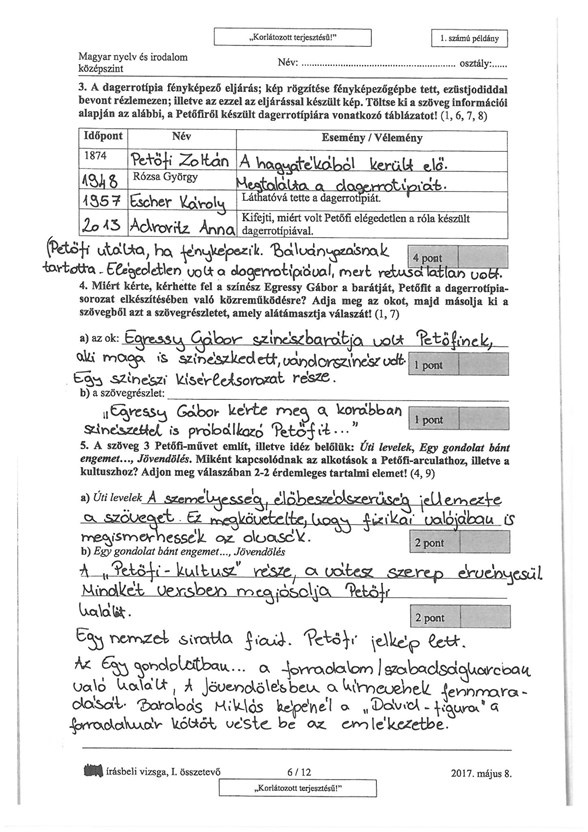 „Korlátozott terjesztésű!”
1. számú példány
Magyar nyelv és irodalom
középszint
Név: ........................................................ osztály:......
3. A dagerrotípia fényképező eljárás; kép rögzítése fényképezőgépbe tett, ezüstjodiddal
bevont rézlemezen; illetve az ezzel az eljárással készült kép. Töltse ki a szöveg információi
alapján az alábbi, a Petőfiről készült dagerrotípiára vonatkozó táblázatot! (1, 6, 7, 8)
Időpont Név Esemény / Vélemény
1874 Petőfi Zoltán A hagyatékából került elő.
1948 Rózsa György Megtalálta a dagerrotípiát.
1957 Escher Károly Láthatóvá tette a dagerrotípiát.
2013 Adrovitz Anna Kifejti, miért volt Petőfi elégedetlen a róla készült
dagerrotípiával.
(Petőfi utálta, ha fényképezik. Bálványozásnak
4 pont
tartotta. Elégedetlen volt a dagerrotípiával, mert retusálatlan volt.
4. Miért kérte, kérhette fel a színész Egressy Gábor a barátját, Petőfit a dagerrotípia-
sorozat elkészítésében való közreműködésre? Adja meg az okot, majd másolja ki a
szövegből azt a szövegrészletet, amely alátámasztja válaszát! (1, 7)
a) az ok: Egressy Gábor színészbarátja volt Petőfinek,
aki maga is színészkedett, vándorszínész volt.
1 pont
Egy színészi kísérletsorozat része.
b) a szövegrészlet:
„Egressy Gábor kérte meg a korábban
1 pont
színészettel is próbálkozó Petőfit...”
5. A szöveg 3 Petőfi-művet említ, illetve idéz belőlük: Úti levelek, Egy gondolat bánt
engemet..., Jövendölés. Miként kapcsolódnak az alkotások a Petőfi-arculathoz, illetve a
kultuszhoz? Adjon meg válaszában 2-2 érdemleges tartalmi elemet! (4, 9)
a) Úti levelek A személyesség, élőbeszédszerűség jellemezte
a szöveget. Ez megkövetelte, hogy fizikai valójában is
megismerhessék az olvasók.
2 pont
b) Egy gondolat bánt engemet..., Jövendölés
A „Petőfi-kultusz” része, a vátesz szerep érvényesül.
Mindkét versben megjósolja Petőfi
halálát.
2 pont
Egy nemzet siratta fiait. Petőfi jelkép lett.
Az Egy gondolatban... a forradalom/szabadságharcban
való halált, A Jövendölésben a hírnevének fennmara-
dását. Barabás Miklós képénél a „Dávid-figura” a
forradalmár költőt véste be az emlékezetbe.
írásbeli vizsga, I. összetevő
6 / 12
2017. május 8.
„Korlátozott terjesztésű!”